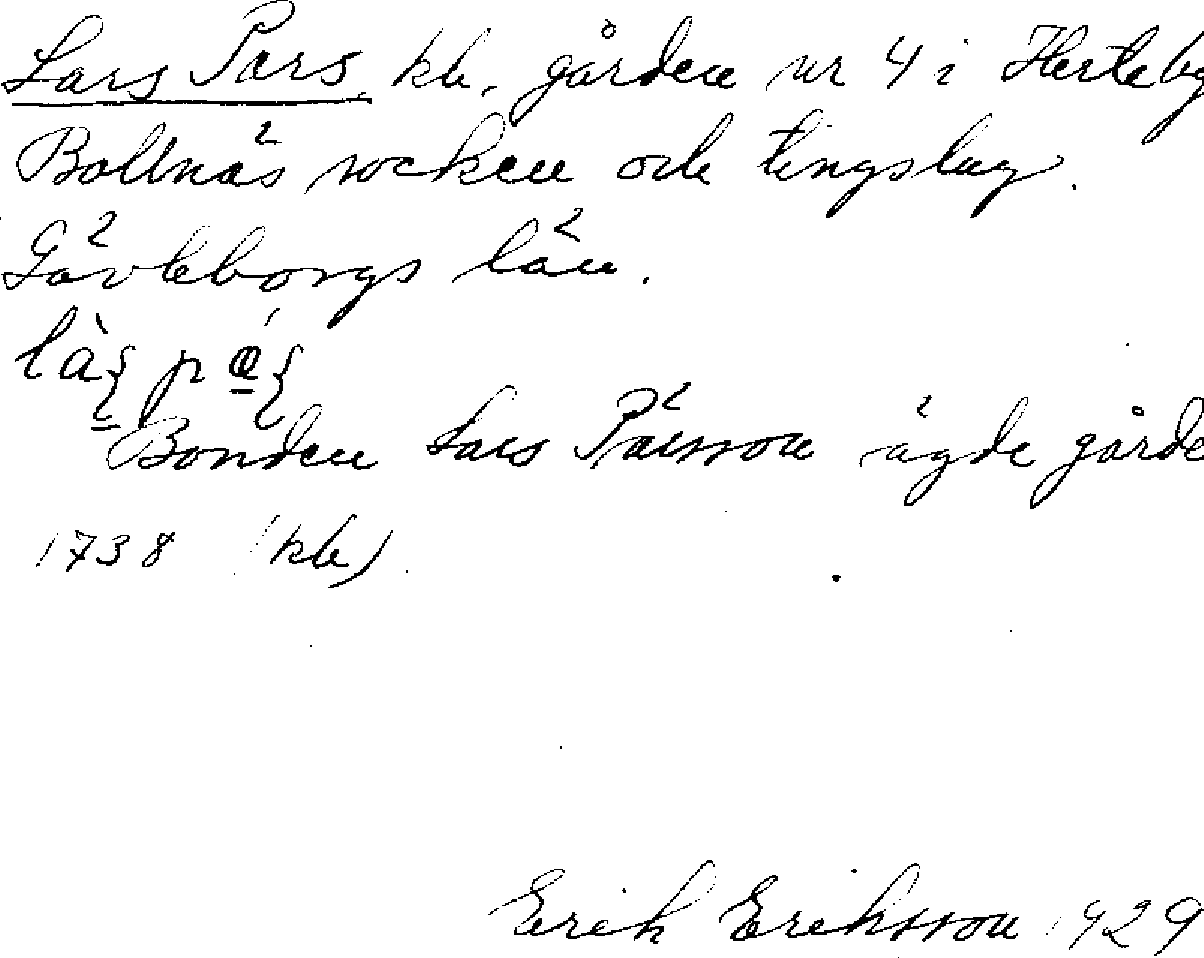 Lars Pers, kb. gården nr 4 i Herteby
Bollnäs socken och tingslag.
Gävleborgs län.
Bonden Lars Pärsson ägde gårde
1738 (kb)
Erik Eriksson 1929